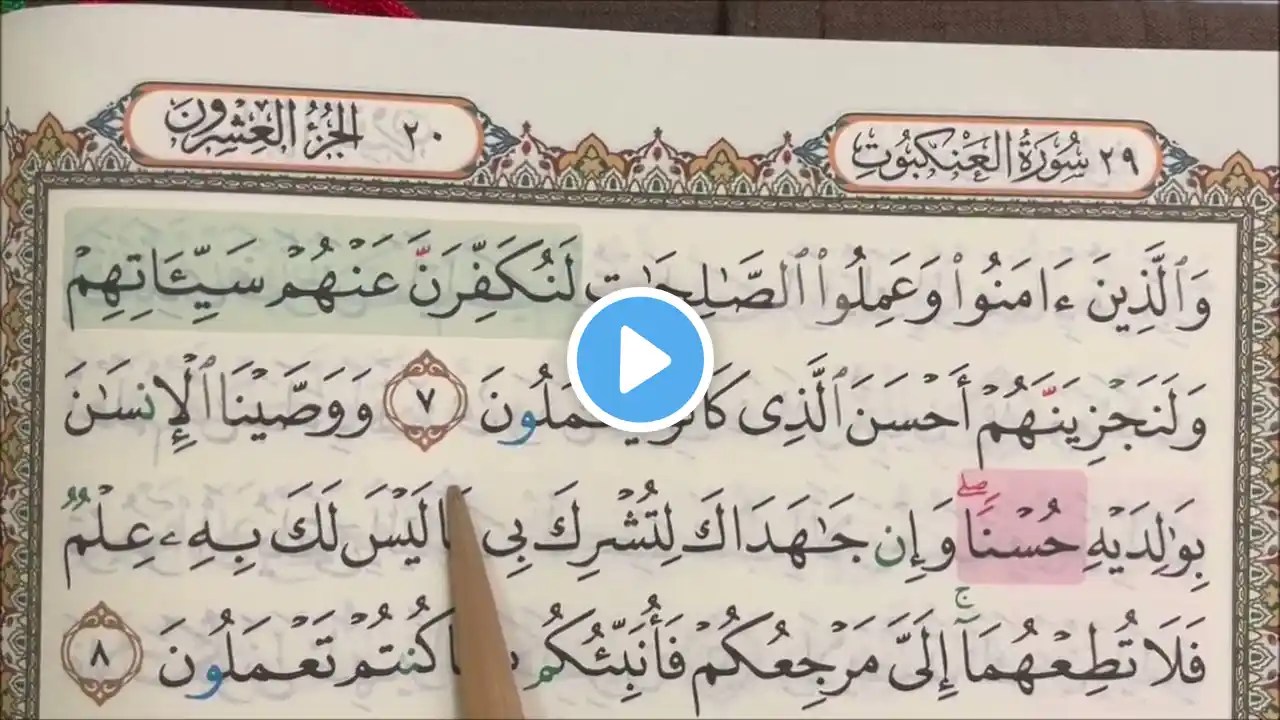 ٢٩ سُورَةُ العَنكَبُوت
الجُزْءُ العِشْرُون ٢٠
وَٱلَّذِينَ ءَامَنُوا۟ وَعَمِلُوا۟ ٱلصَّـٰلِحَـٰتِ لَنُكَفِّرَنَّ عَنْهُمْ سَيِّـَٔاتِهِمْ
وَلَنَجْزِيَنَّهُمْ أَحْسَنَ ٱلَّذِى يَعْمَلُونَ ٧ وَوَصَّيْنَا ٱلْإِنسَـٰنَ
بِوَٰلِدَيْهِ حُسْنًا ۖ وَإِن جَـٰهَدَاكَ لِتُشْرِكَ بِى لَيْسَ لَكَ بِهِۦ عِلْمٌ
فَلَا تُطِعْهُمَآ ۚ إِلَىَّ مَرْجِعُكُمْ فَأُنَبِّئُكُم كُنتُمْ تَعْمَلُونَ ٨